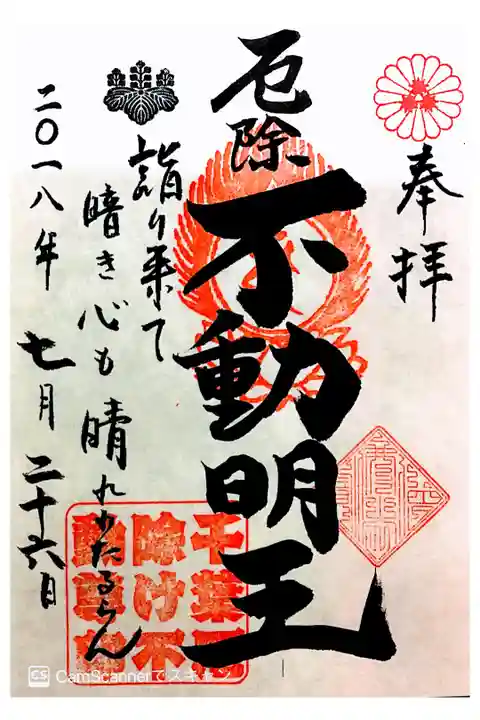 奉拝
厄除
不動明王
詣り来て
暗き心も晴れわたるらん
二〇一八年七月二十六日
CS CamScannerでスキャン